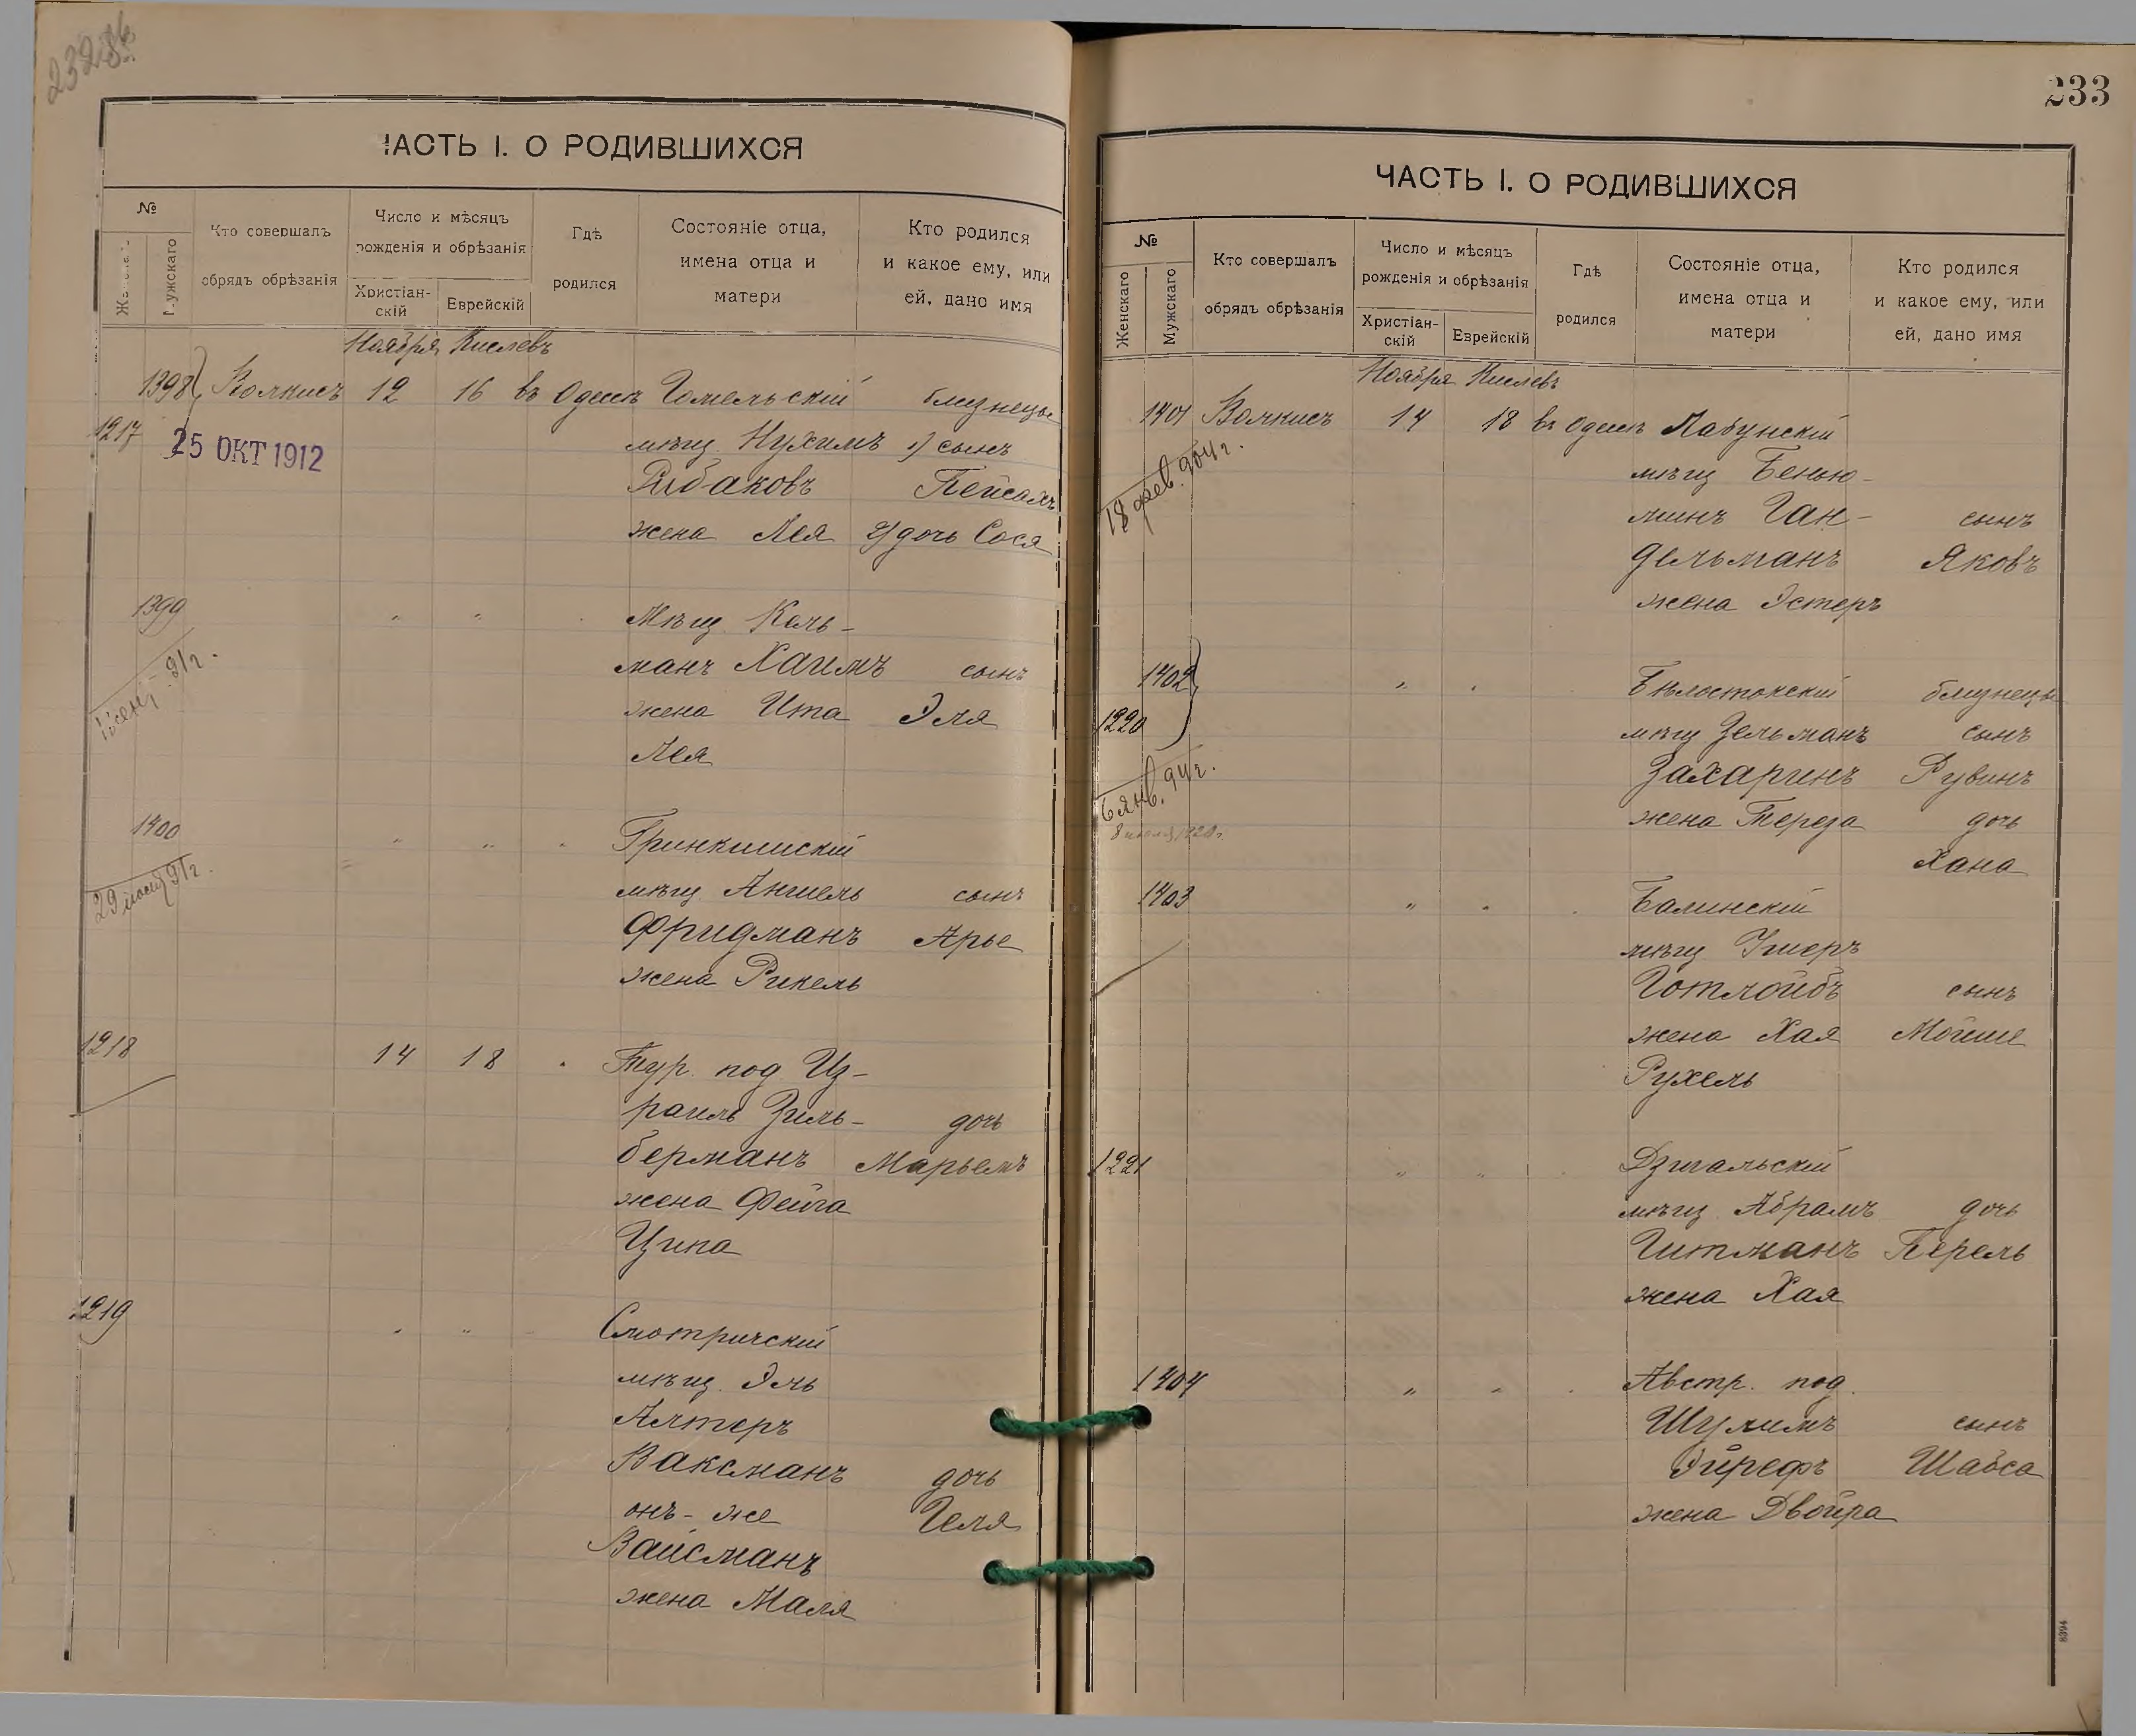 ЧАСТЬ I. О РОДИВШИХСЯ
№
Женскаго
Мужскаго
Кто совершалъ
обрядъ обрѣзанія
Число и мѣсяцъ
рожденія и обрѣзанія
Христіан-
скій
Еврейскій
Гдѣ
родился
Состояніе отца,
имена отца и
матери
Кто родился
и какое ему, или
ей, дано имя
Ноября Кислевъ
1398 Волкисъ 12 16 въ Одессѣ Гомельскій близнецы
1217 25 ОКТ 1912 мѣщ. Нухимъ 1) сынъ
Рибаковъ Пейсахъ
жена Лея 2) дочь Сося
1399 " " Мѣщ. Кель-
манъ Хаимъ сынъ
91г.
жена Ита Эля
Лея
1400 " " " Гринкишскій
29 91г.
мѣщ. Аншель сынъ
Фридманъ Арье
жена Рикель
1218 14 18 " Тур. под. Из-
раиль Зиль- дочь
берманъ Марьемъ
жена Фейга
Ципа
1219 " " Смотричскій
мѣщ. Эль
Алтеръ
Ваксманъ дочь
онъ-же Геля
Вайсманъ
жена Маля
233
ЧАСТЬ I. О РОДИВШИХСЯ
№
Женскаго
Мужскаго
Кто совершалъ
обрядъ обрѣзанія
Число и мѣсяцъ
рожденія и обрѣзанія
Христіан-
скій
Еврейскій
Гдѣ
родился
Состояніе отца,
имена отца и
матери
Кто родился
и какое ему, или
ей, дано имя
Ноября Кислевъ
1401 Волкисъ 14 18 въ Одессѣ Лабунскій
18 фев. 904г.
мѣщ Бенью-
минъ Ган- сынъ
дельманъ Яковъ
жена Эстеръ
1402 " " Бѣлостокскій близнецы
1220 мѣщ Зельманъ сынъ
6 янв. 94г.
Захаринъ Рувинъ
жена Тереза дочь
Хана
1403 " " " Балинскій
мѣщ Ушеръ
Готлойбъ сынъ
жена Хая Мойше
Рухель
1221 " " Дзигальскій
мѣщ. Абрамъ дочь
Гитманъ Перель
жена Хая
1404 " " " Австр. под.
Шулимъ сынъ
Эйрефъ Шабса
жена Двойра
8394